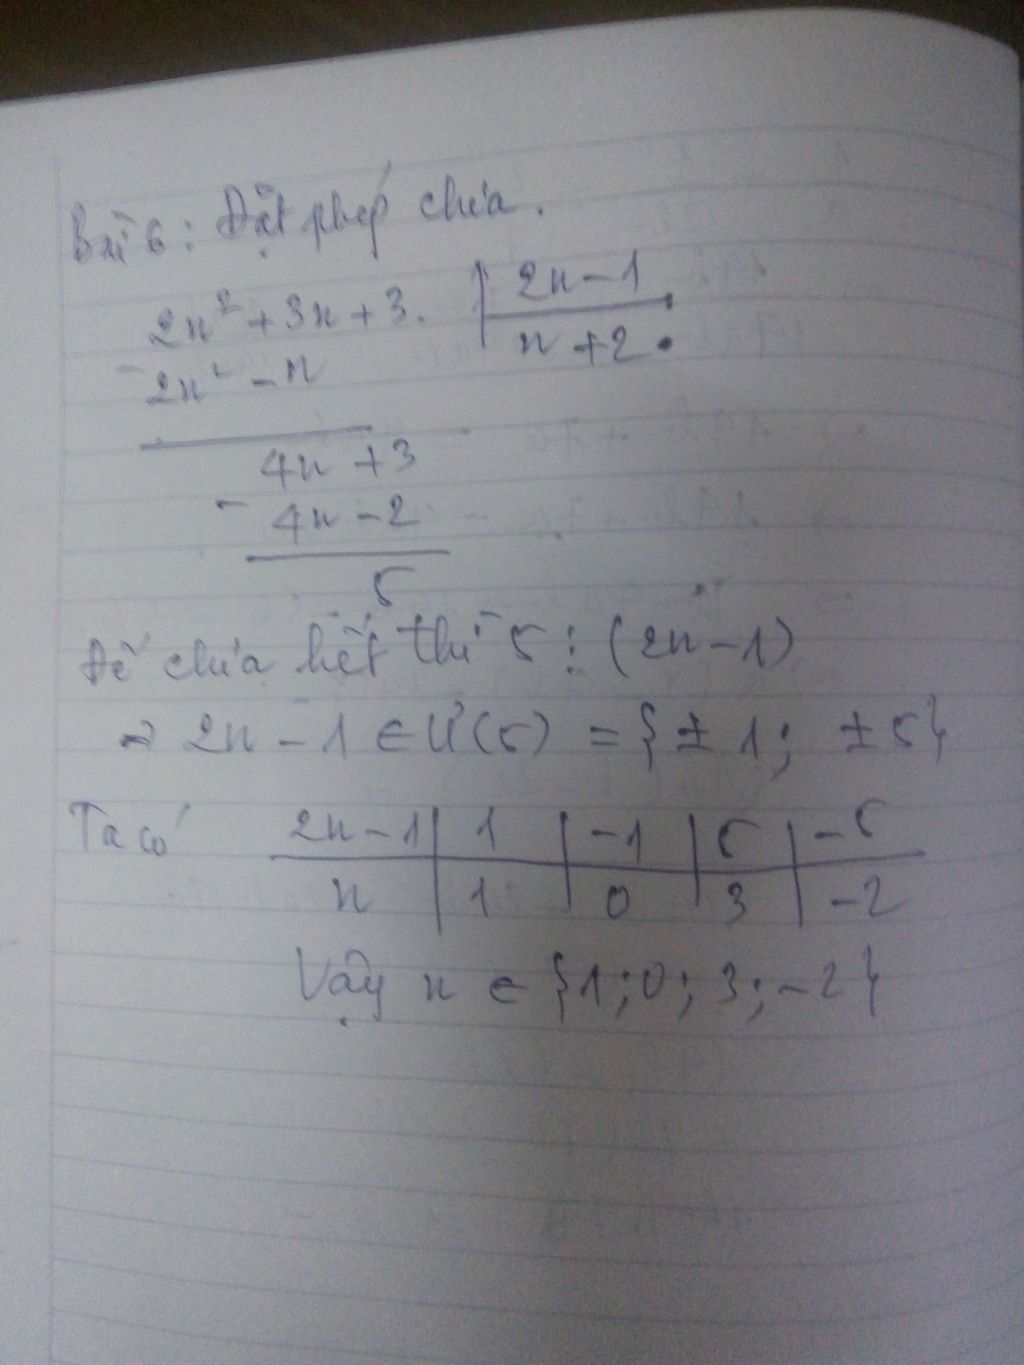 Bài 6: Đặt phép chia.
2n² + 3n + 3. | 2n - 1
- 2n² - n | n + 2.
4n + 3
- 4n - 2
5
Để chia hết thì 5 ⋮ (2n - 1)
⇒ 2n - 1 ∈ Ư(5) = {± 1; ± 5}
Ta có 2n - 1 | 1 | -1 | 5 | -5
n | 1 | 0 | 3 | -2
Vậy n ∈ {1; 0; 3; -2}